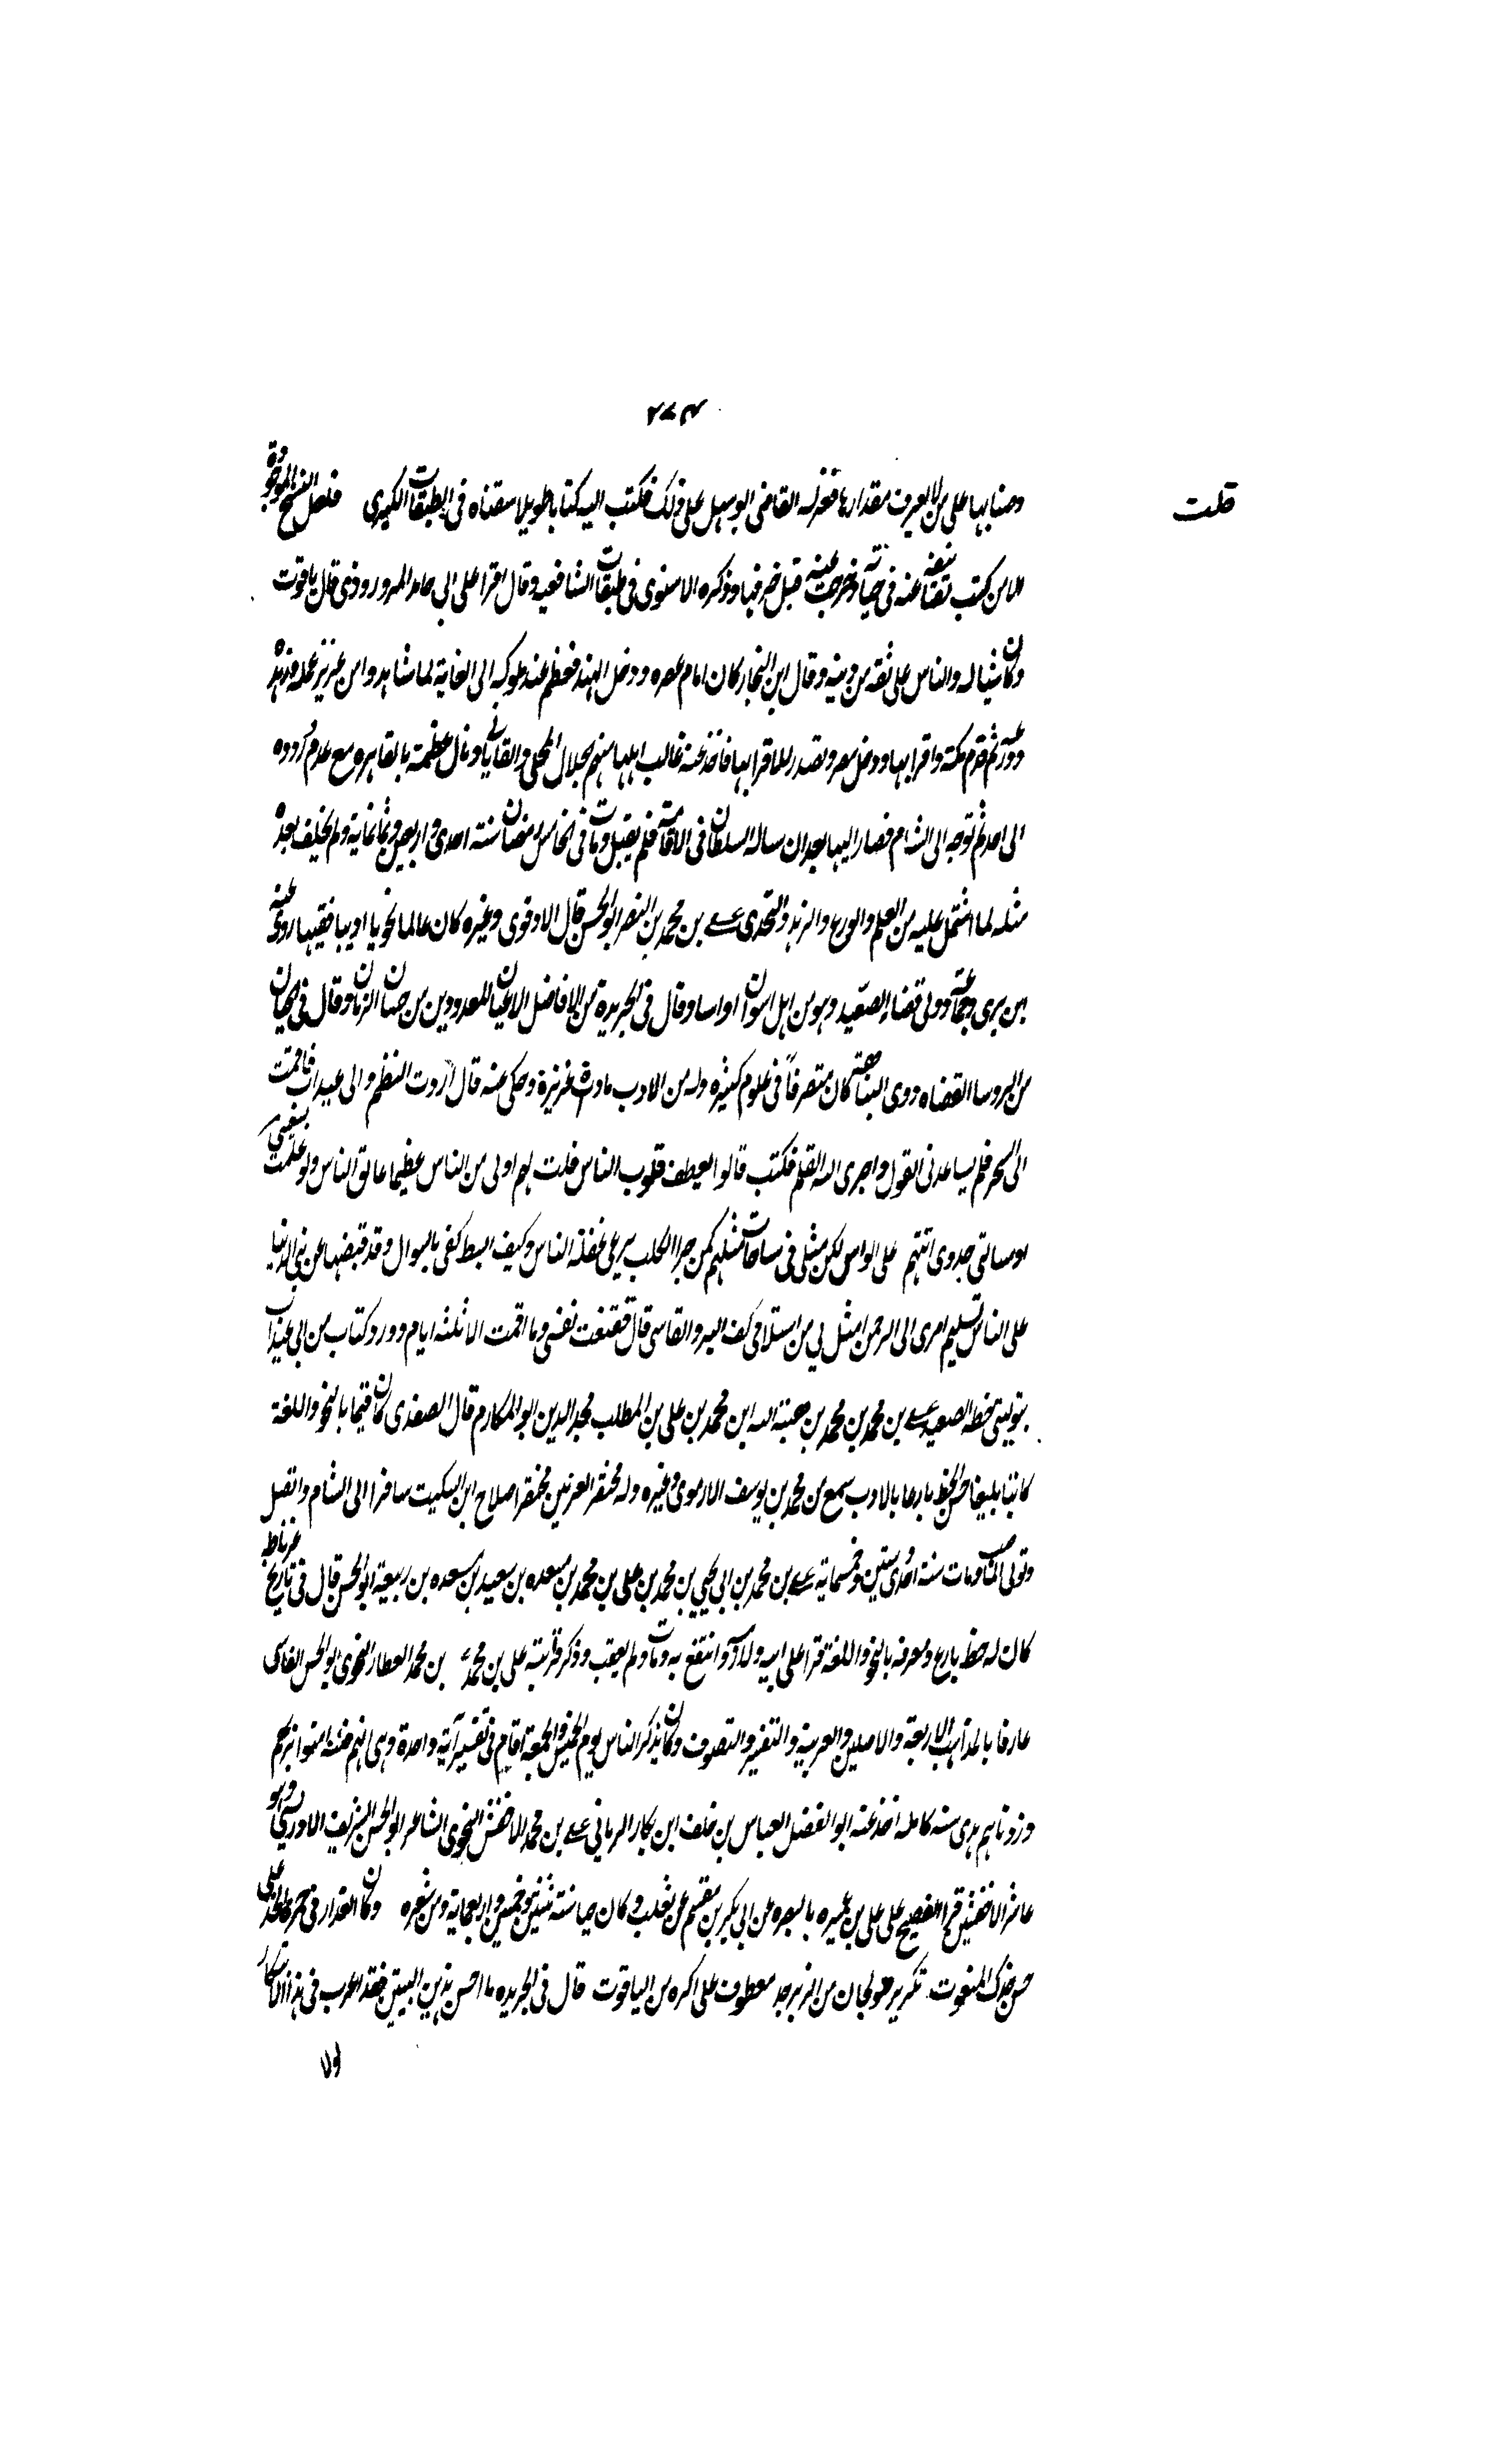 ٢٧٤
وضنا بها على من لا يعرف مقدارها فعزله القاضي ابو سهل على ذلك فكتب اليه كتابا طويلا سقناه في الطبقات الكبرى فلعل النسخ الموجودة
قلت
الا من كتب عنه في حياته وخرجت عنه قبل وذكره الاسنوى في طبقات الشافعيه وقال اقرا على ابى حامد المروروذى قال ياقوت
وكان والناس على ثقه من دينه وقال ابن النجار كان امام عصره ودخل الهند فعظم عند ملوكه الى الغاية لما شاهدوا من غزير علمه وزهده
وورعه ثم قدم مكة واقرا بها ودخل مصر وتصدر للاقرا بها فاخذ عنه غالب اهلها منهم الجلال المحلى والقاياتى ونال عظمة بالقاهره مع عدم تردده
الى احد ثم توجه الى الشام فصار اليها بعد ان ساله السلطان في الاقامة فلم يقبل ومات في خامس رمضان سنة احدى واربعين وثمانماية ولم يخلف بعده
مثله لما اشتمل عليه من العلم والورع والزهد والتحرى على بن محمد بن النضر ابو الحسن قال الادفوى وغيره كان عالما نحويا اديبا فقيها روى عنه
ابن برى وجماعة وولى قضاء الصعيد وهو من اهل اسوان او اسنا وقال في الخريدة من الافاضل الاعيان المعدودين من حسنات الزمان وقال في الجنان
من الروسا القضاه ذوى النباهة كان متصرفا في علوم كثيره وله من الادب مادة غزيرة وحكى عنه قال اردت النظم والى عيذاب فاقمت
الى السحر فلم يساعدنى القول واجرى الله القلم فكتب قالوا تعطف قلوب الناس قلت لهم اولى من الناس عطفا خالق الناس ولو علمت بسعيى
او مسالتى جدوى اتيتهم على الراس لكن مثلى في ساحات مثلهم كمزجر الكلب يرعى غفلة الناس وكيف ابسط كفى بالسوال وقد قبضتها عن بنى الدنيا
على الناس تسليم امرى الى الرحمن امثل بي من استلامى كف البر والقاسى قال فقنعت نفسى وما اقمت الا ثلثه ايام وورد كتاب من ابى عيذاب
بتوليتى خطه الصعيد على بن محمد بن محمد بن هبة الله ابن محمد بن على بن المطلب مجد الدين ابو المكارم قال الصفدى كان قيما بالنحو واللغة
كاتبا بليغا حسن الخط بارعا بالادب سمع من محمد بن يوسف الارموى وغيره وله مختصر الغريبين مختصر اصلاح ابن السكيت سافر الى الشام واتصل
وتولى المناصب ومات سنة احدى وستين وخمسماية على بن محمد بن ابى يحيى بن محمد بن على بن محمد بن مسعده بن سعيد بن مسعده بن ربيعة ابو الحسن قال في تاريخ غرناطه
كان له حظ بارع ومعرفه بالنحو واللغة قرا على ابيه ولازمه وانتفع به ومات ولم يعقب وذكر قرابته على بن محمد بن محمد العطار النحوى ابو الحسن الفاسى
عارفا بالمذاهب الاربعة والاصلين والعربية والتفسير والتصوف وكان يذكر الناس يوم الخميس والجمعة اقام في تفسير آية واحدة وهى انهم فتية امنوا بربهم
وزدناهم هدى سنه كامله اخذ عنه ابو الفضل العباس بن خلف ابن بكار الرمانى على بن محمد الاخفش النحوى الشاعر ابو الحسن الشريف الادريسى وهو
عاشر الاخفشين قرا الفصيح على على بن عميره بالبصره عن ابى بكر بن مقسم عن ثعلب وكان حيا سنة ثنتين وخمسين واربعماية ومن شعره وكان العذار في حمره الخد على
حسن خدك المنعوت صولجان من الزبرجد معطوف على اكره من الياقوت قال في الخريده ما احسن هذين البيتين فقد اعرب في هذا
اولا